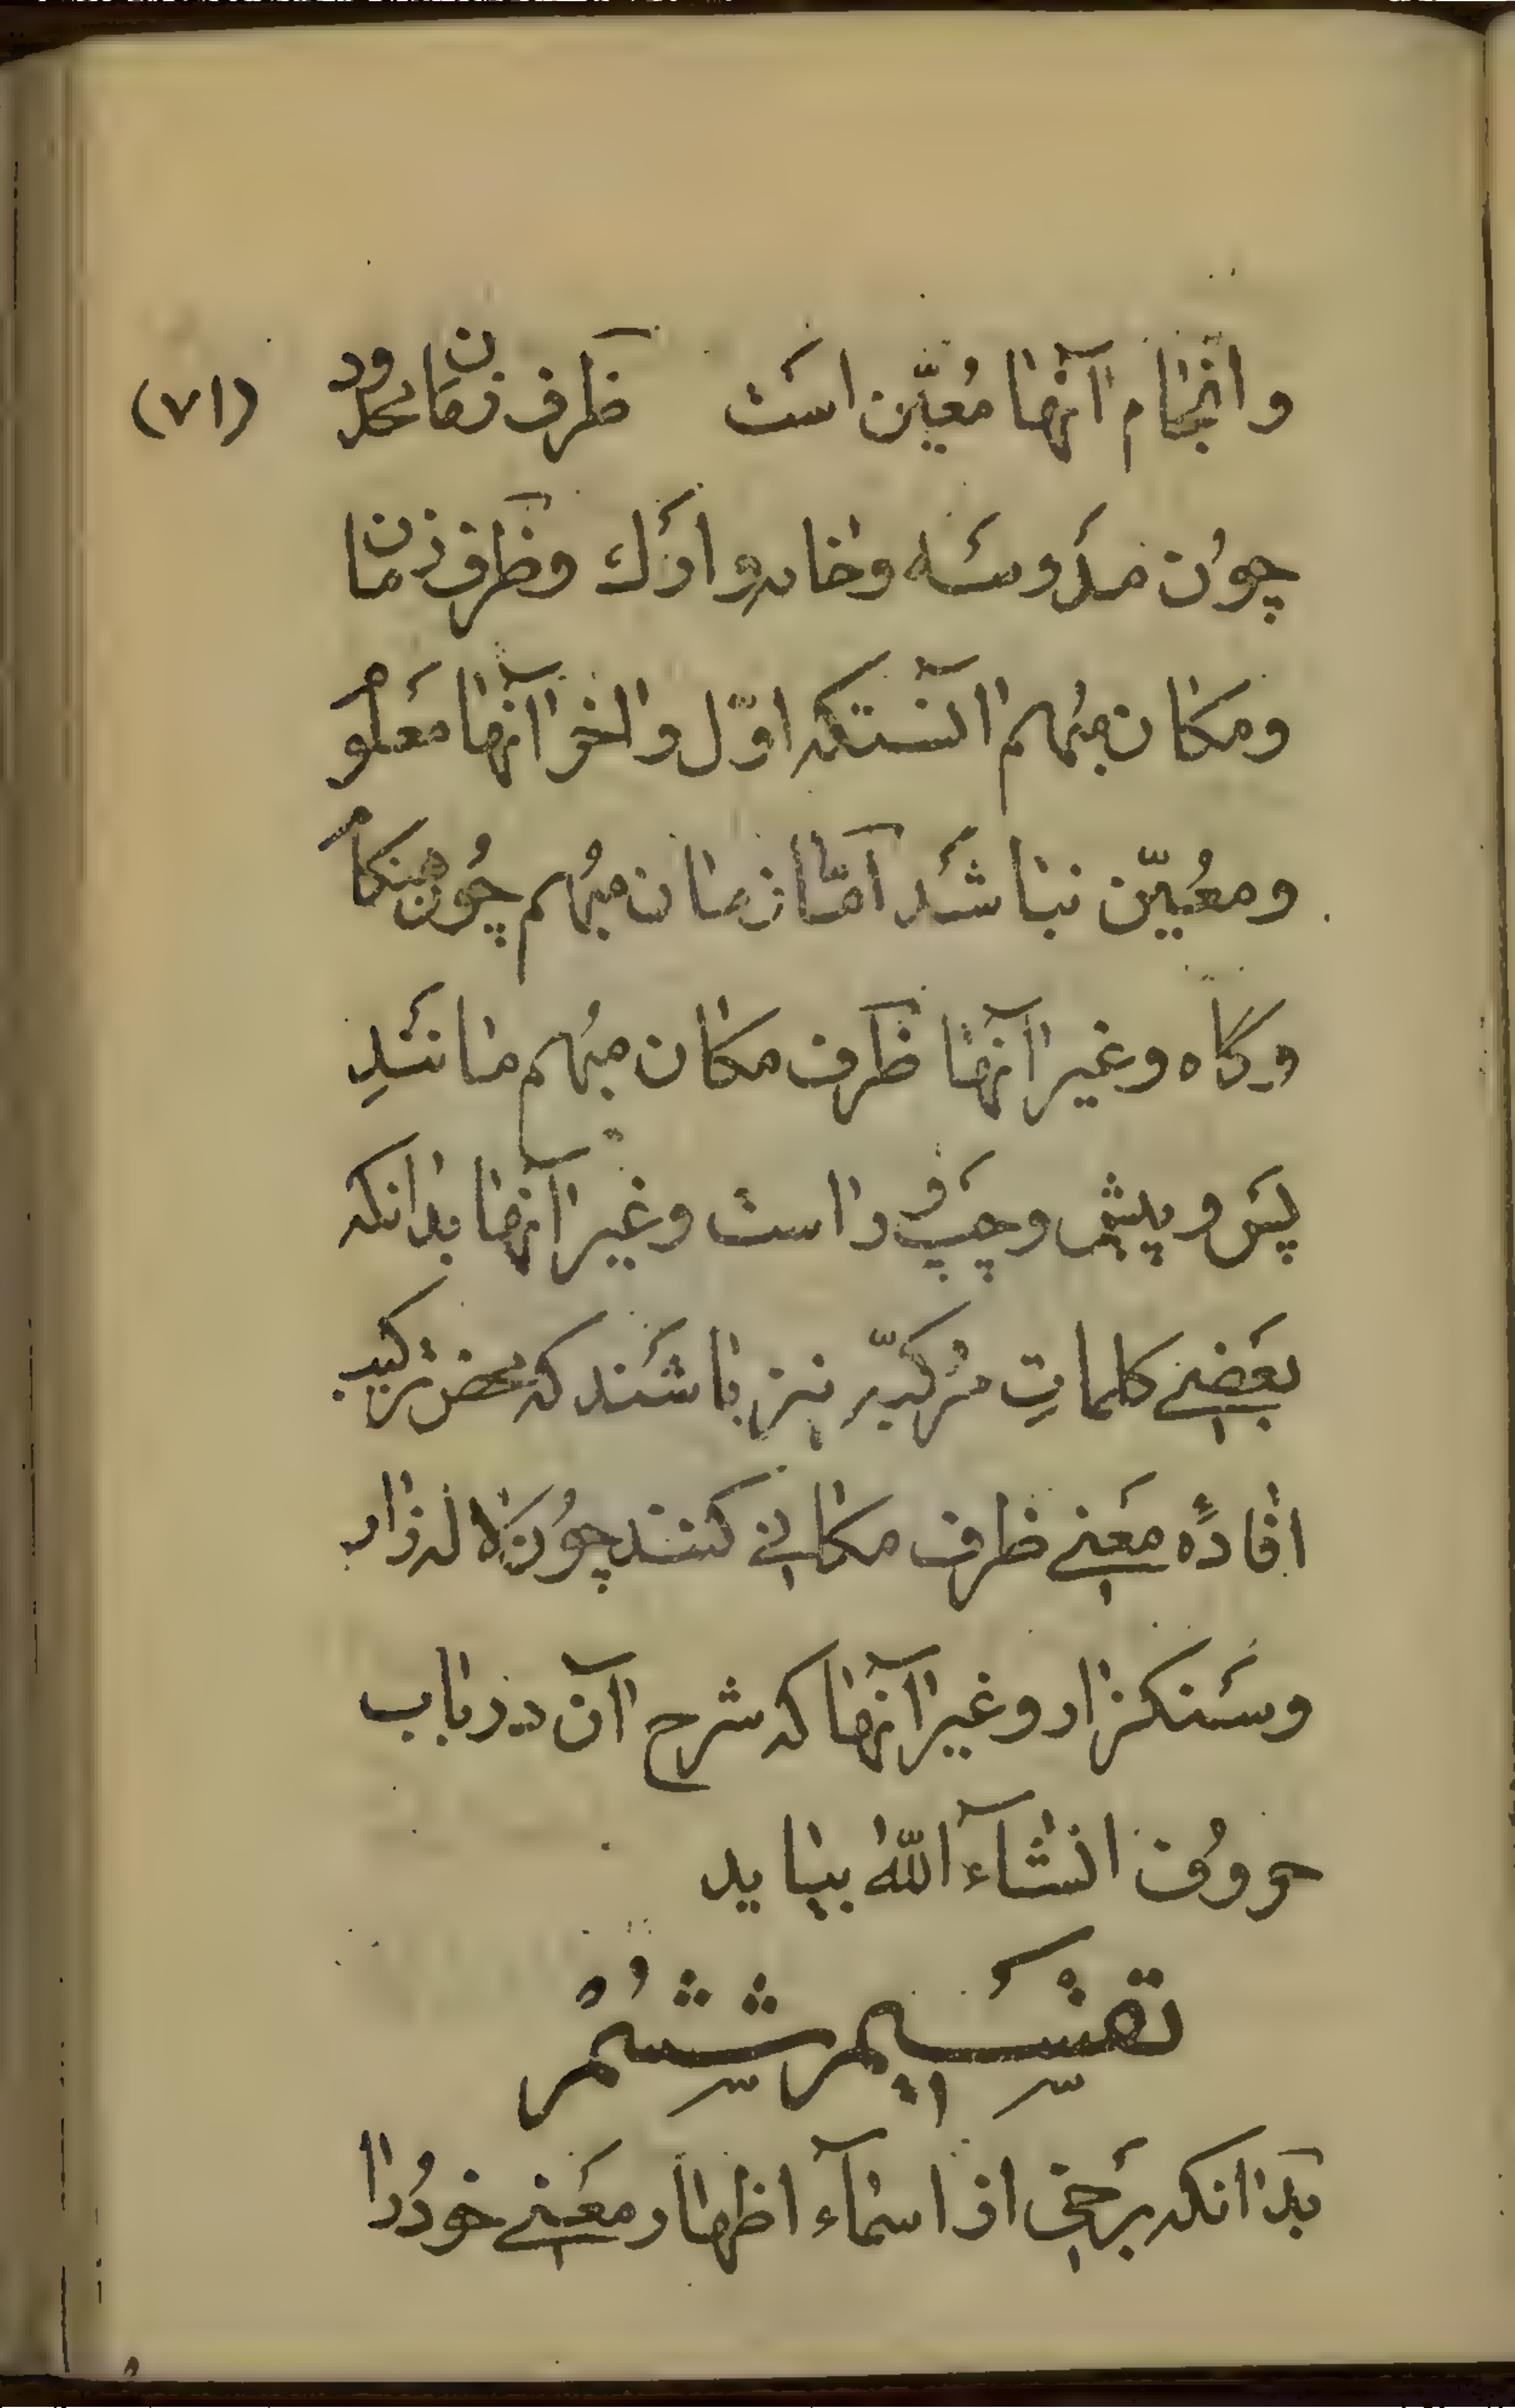 وانجام آنها مُعیّن است ظرف مکان محدود (۷۱)
چون مَدرسَه وخانه وارَك وظرف زمان
ومکان مبُهم آنستکه اوّل واخر آنها مَعلوم
ومعُیّن نباشَد امّا زمان مبُهم چُون هنکام
وکاه وغیر آنها ظرف مکان مبُهم مانَندِ
پَس و پیش وچَپ و راست وغیر آنها بدانکه
بعَضے کلماتِ مُرکبّه نیز باشَند که محض ترکیب
افادهٔ مَعنے ظرف مکانے کنند چُون لاله زار
وسَنکزار وغیر آنها که شرح آن در باب
حروُف انشآء اللّه بیاید
تقسیم ششُم
بدانکه بَرخی از اسمآء اظهار مَعنے خودُرا